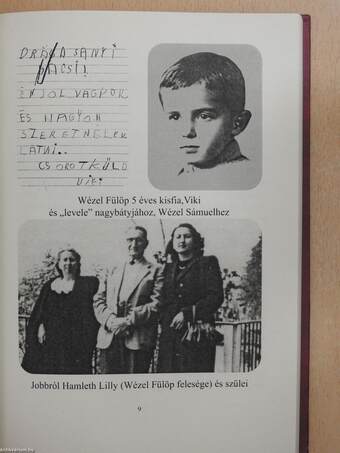 DRÁGA SANYI
BÁCSI!
ÉN JOL VAGYOK
ÉS NAGYON
SZERETNÉLEK
LÁTNI..
CSOROTKÜLD
VIKI
Wézel Fülöp 5 éves kisfia,Viki
és „levele” nagybátyjához, Wézel Sámuelhez
Jobbról Hamleth Lilly (Wézel Fülöp felesége) és szülei
9